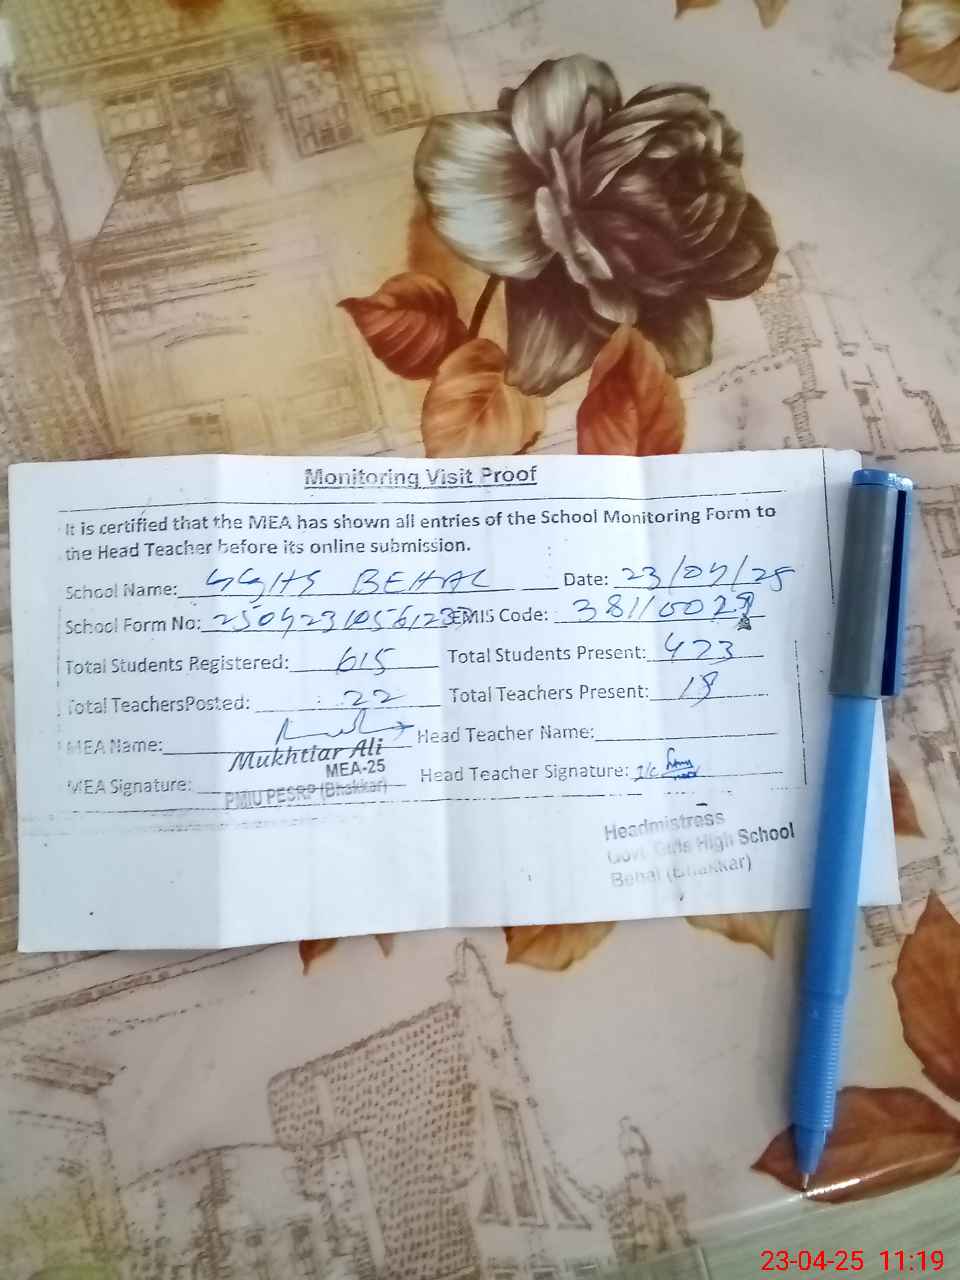 Monitoring Visit Proof
It is certified that the MEA has shown all entries of the School Monitoring Form to
the Head Teacher before its online submission.
School Name: GGHS BEHAL Date: 23/04/25
School Form No: EMIS Code:
Total Students Registered: 615 Total Students Present: 423
Total TeachersPosted: 22 Total Teachers Present: 18
MEA Name: Head Teacher Name:
Mukhtiar Ali
MEA-25
MEA Signature: Head Teacher Signature: I/c
PMIU PESRP (Bhakkar)
Headmistress
Govt. Girls High School
Behal (Bhakkar)
23-04-25 11:19